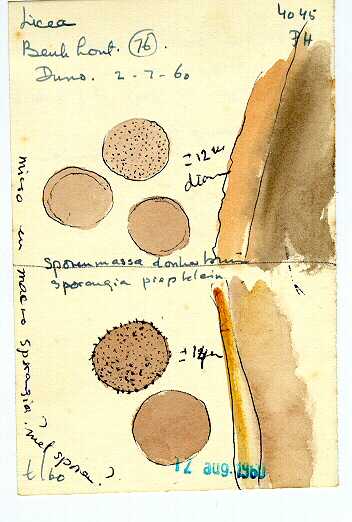 Licea
Benk hout. (76).
Duno. 2-7-60
4045
PH
± 12 µ
diam
sporenmassa donker bruin
sporangia piepklein
± 14 µ
micro en macro sporangia.
(met sporen?)
t/60
12 aug. 1960